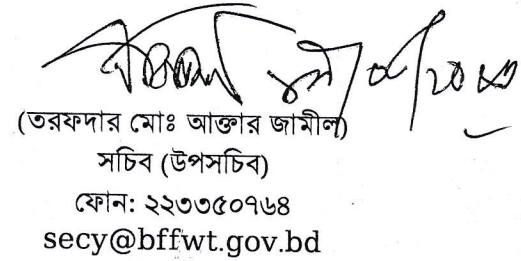 (তরফদার মোঃ আক্তার জামীল)
সচিব (উপসচিব)
ফোন: ২২৩৩৫০৭৬৪
secy@bffwt.gov.bd